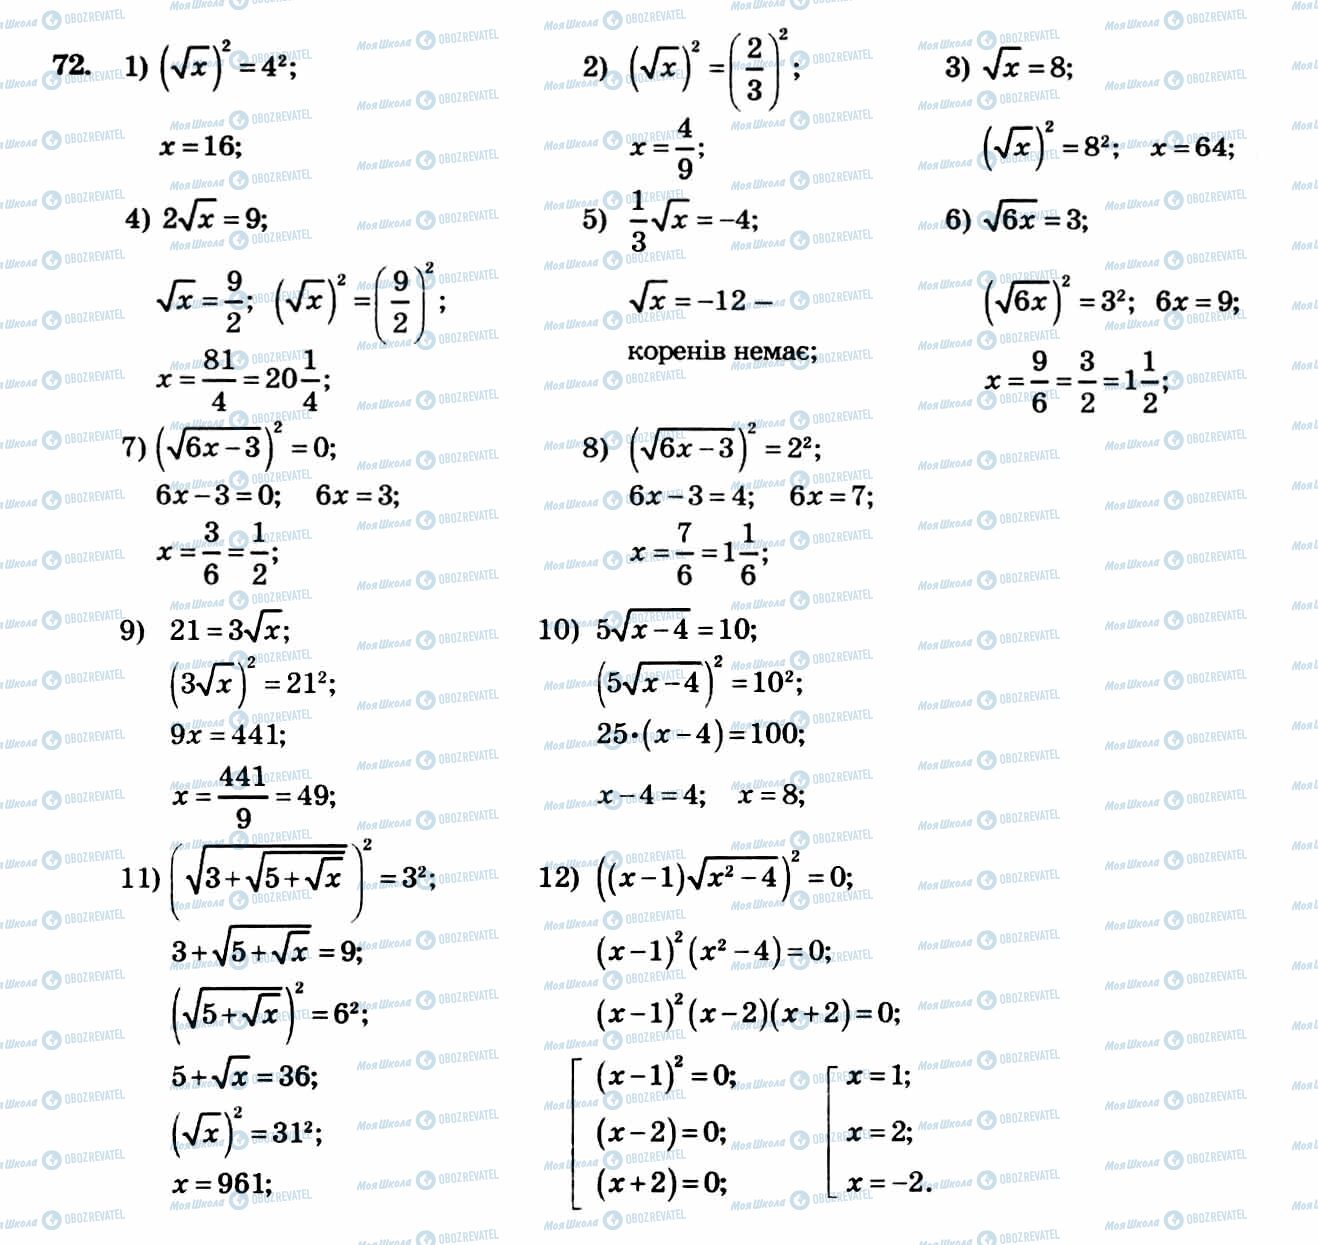 72. 1) (√x)² = 4²;
x = 16;
2) (√x)² = (2/3)²;
x = 4/9;
3) √x = 8;
(√x)² = 8²; x = 64;
4) 2√x = 9;
√x = 9/2; (√x)² = (9/2)²;
x = 81/4 = 20 1/4;
5) 1/3 √x = −4;
√x = −12 –
коренів немає;
6) √(6x) = 3;
(√(6x))² = 3²; 6x = 9;
x = 9/6 = 3/2 = 1 1/2;
7) (√(6x − 3))² = 0;
6x − 3 = 0; 6x = 3;
x = 3/6 = 1/2;
8) (√(6x − 3))² = 2²;
6x − 3 = 4; 6x = 7;
x = 7/6 = 1 1/6;
9) 21 = 3√x;
(3√x)² = 21²;
9x = 441;
x = 441/9 = 49;
10) 5√(x − 4) = 10;
(5√(x − 4))² = 10²;
25·(x − 4) = 100;
x − 4 = 4; x = 8;
11) (√(3 + √(5 + √x)))² = 3²;
3 + √(5 + √x) = 9;
(√(5 + √x))² = 6²;
5 + √x = 36;
(√x)² = 31²;
x = 961;
12) ((x − 1)√(x² − 4))² = 0;
(x − 1)² (x² − 4) = 0;
(x − 1)² (x − 2)(x + 2) = 0;
[ (x − 1)² = 0; [ x = 1;
(x − 2) = 0; x = 2;
(x + 2) = 0; x = −2.
Моя Школа OBOZREVATEL